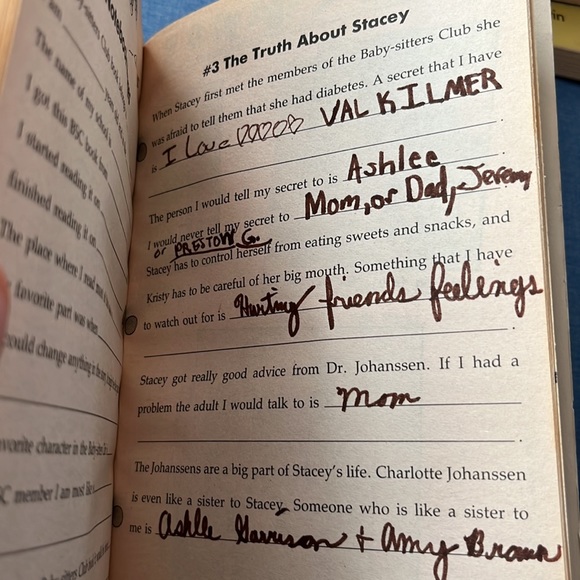 Sitters Club
The name of my school
I got this BSC book from
I started reading it on
finished reading it on
The place where I read
favorite part was when
could change anything in the
favorite character in the Baby-
BSC member I am most like
#3 The Truth About Stacey
When Stacey first met the members of the Baby-sitters Club she
was afraid to tell them that she had diabetes. A secret that I have
is I love ♡♡♡♡♡ VAL KILMER
The person I would tell my secret to is Ashlee
I would never tell my secret to Mom, or Dad, Jeremy
or PRESTON G.
Stacey has to control herself from eating sweets and snacks, and
Kristy has to be careful of her big mouth. Something that I have
to watch out for is Hurting friends feelings
Stacey got really good advice from Dr. Johanssen. If I had a
problem the adult I would talk to is Mom
The Johanssens are a big part of Stacey's life. Charlotte Johanssen
is even like a sister to Stacey. Someone who is like a sister to
me is Ashlee Garrison + Amy Brown